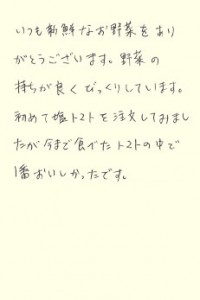 いつも新鮮なお野菜をあり
がとうございます。野菜の
持ちが良くびっくりしています。
初めて塩トマトを注文してみまし
たが今まで食べたトマトの中で
1番おいしかったです。